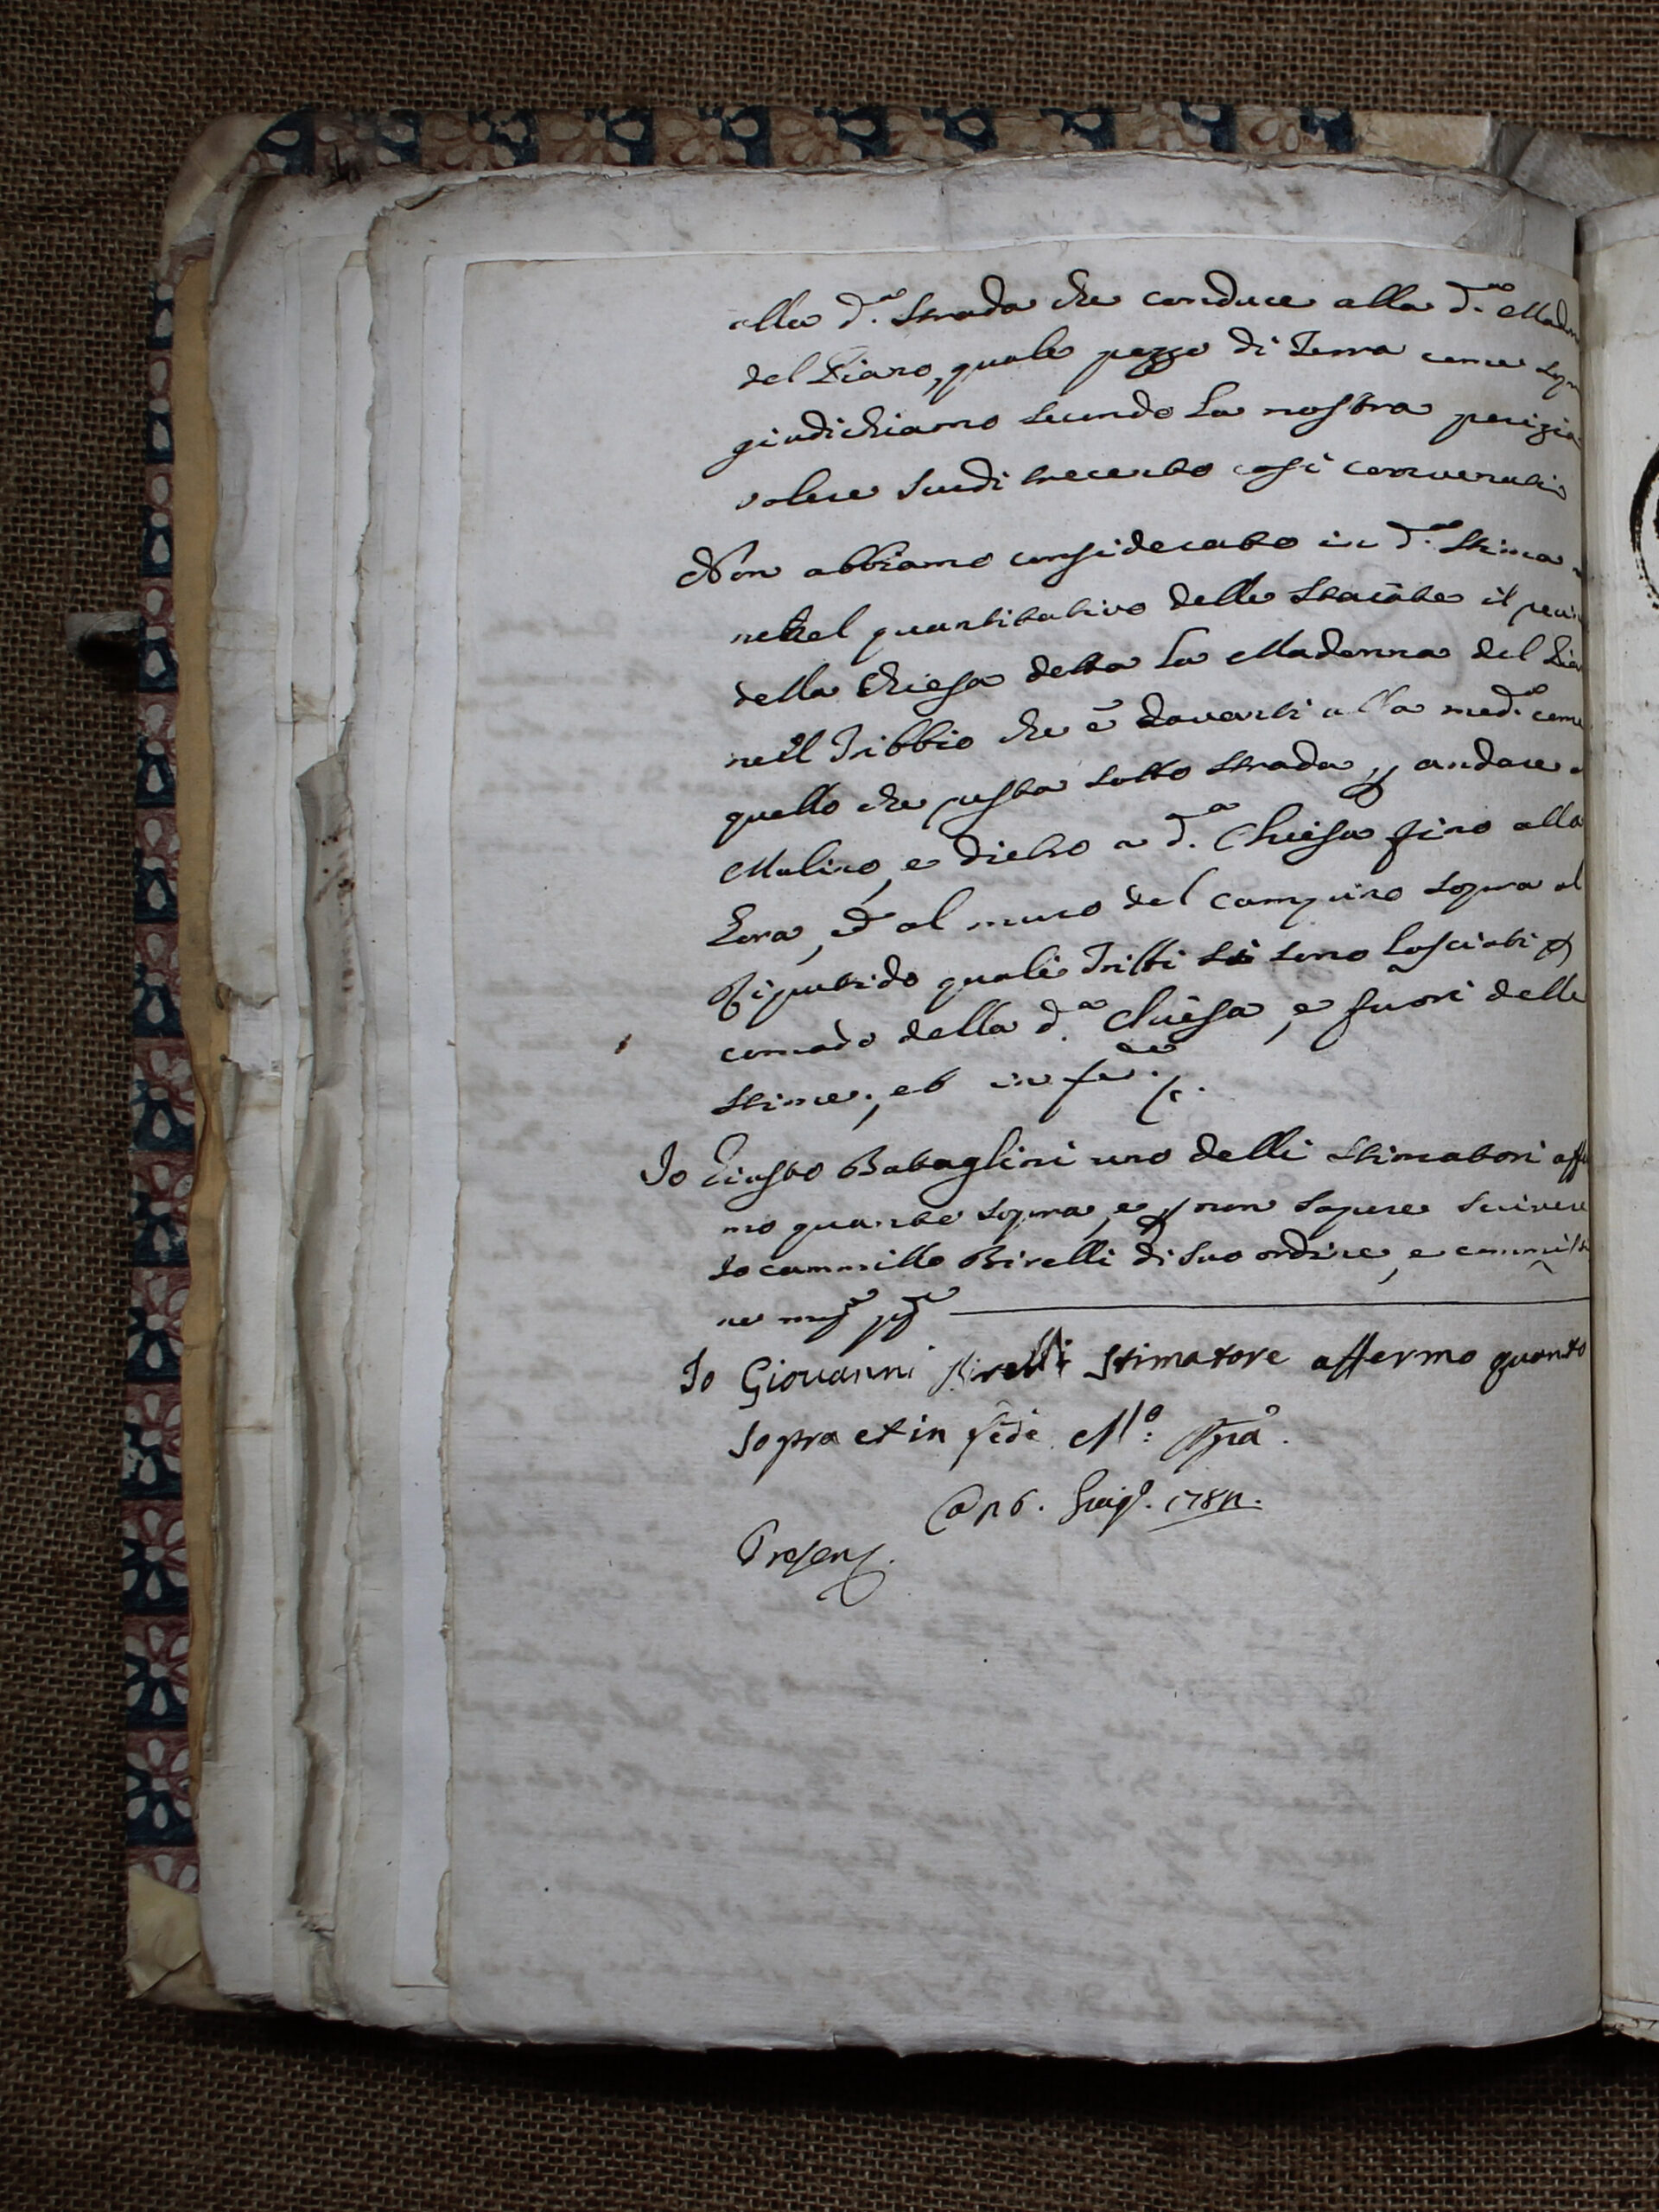 alla d.a Strada che conduce alla d.a Madon
del Piano, quale pezzo di Terra come sopr
giudichiamo secondo la nostra perizia
valere Scudi trecento così conuenuti
Non abbiamo considerato in d.a Stima
ne nel quantitativo delle Staiate il
della Chiesa detta la Madonna del Pia
nel Tribbio che è davanti alla med.a come
quello che resta sotto Strada p andare a
Molino, e dietro a d.a Chiesa fino alla
ed al muro del campino sopra al
Ripurido quali Tribbi si sono lasciati p
comodo della d.a Chiesa, e fuori delle
stime, et in fede
Io Giusto Bataglini uno delli Stimatori affe
mo quanto sopra, e p non sapere scrivere
Io cammillo Birelli di suo ordine, e commiss
ne mo ppa
Io Giovanni Birelli Stimatore affermo quanto
sopra et in fede M.o ppa.
Giug.o
Presens.